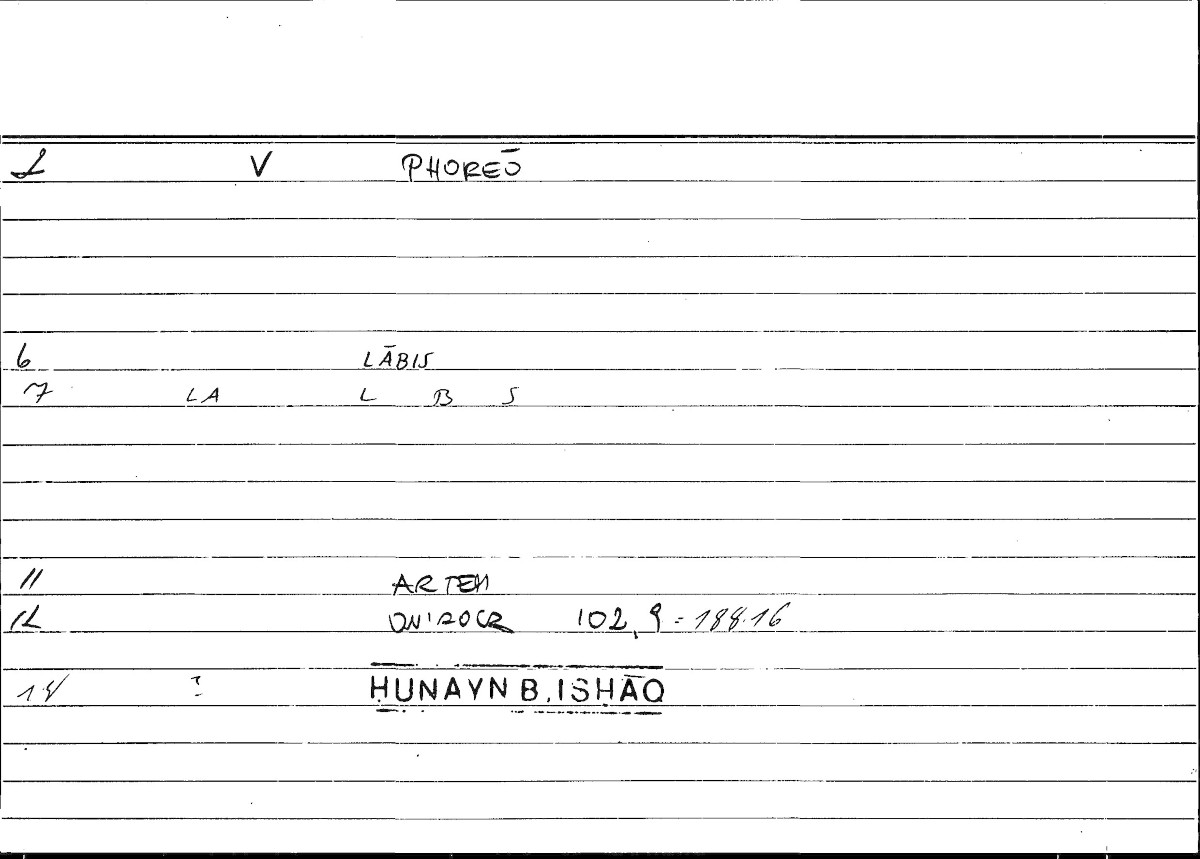 1 V PHOREŌ
6 LĀBIS
7 LA L B S
11 ARTEM
12 ONIROCR 102,9 = 188.16
14 ? ḤUNAYN B. ISḤĀQ